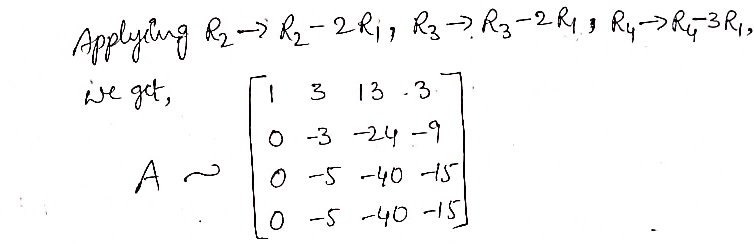 Applying R₂ → R₂ - 2R₁, R₃ → R₃ - 2R₁, R₄ → R₄ - 3R₁,
we get,
1 3 13 3
0 -3 -24 -9
A ~ 0 -5 -40 -15
0 -5 -40 -15